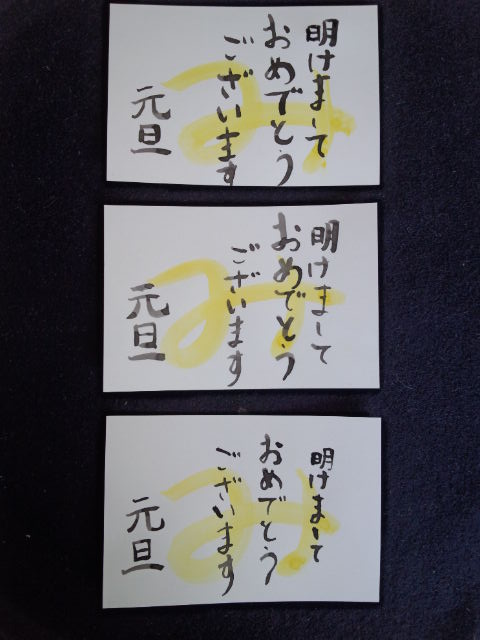 明けまして
おめでとう
ございます
元旦
み
明けまして
おめでとう
ございます
元旦
み
明けまして
おめでとう
ございます
元旦
み